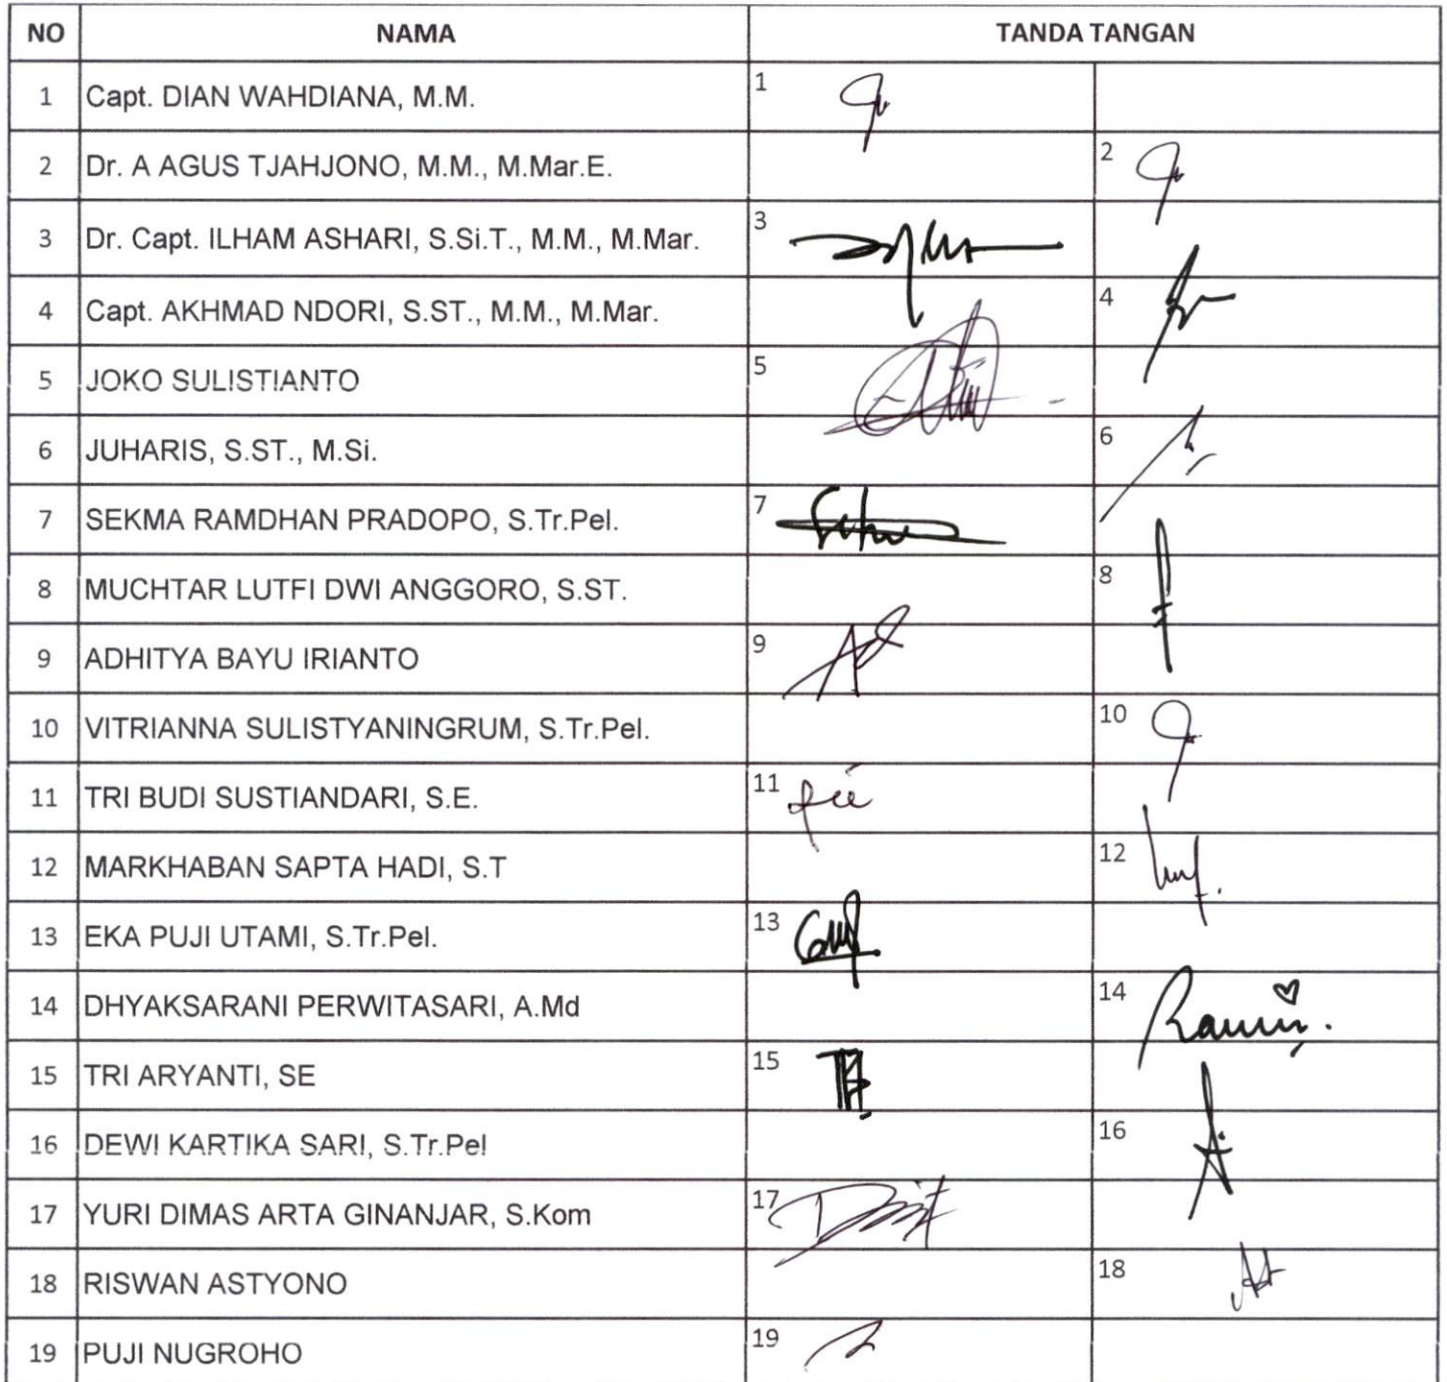 NO NAMA TANDA TANGAN
1 Capt. DIAN WAHDIANA, M.M. 1
2 Dr. A AGUS TJAHJONO, M.M., M.Mar.E. 2
3 Dr. Capt. ILHAM ASHARI, S.Si.T., M.M., M.Mar. 3
4 Capt. AKHMAD NDORI, S.ST., M.M., M.Mar. 4
5 JOKO SULISTIANTO 5
6 JUHARIS, S.ST., M.Si. 6
7 SEKMA RAMDHAN PRADOPO, S.Tr.Pel. 7
8 MUCHTAR LUTFI DWI ANGGORO, S.ST. 8
9 ADHITYA BAYU IRIANTO 9
10 VITRIANNA SULISTYANINGRUM, S.Tr.Pel. 10
11 TRI BUDI SUSTIANDARI, S.E. 11
12 MARKHABAN SAPTA HADI, S.T 12
13 EKA PUJI UTAMI, S.Tr.Pel. 13
14 DHYAKSARANI PERWITASARI, A.Md 14
15 TRI ARYANTI, SE 15
16 DEWI KARTIKA SARI, S.Tr.Pel 16
17 YURI DIMAS ARTA GINANJAR, S.Kom 17
18 RISWAN ASTYONO 18
19 PUJI NUGROHO 19